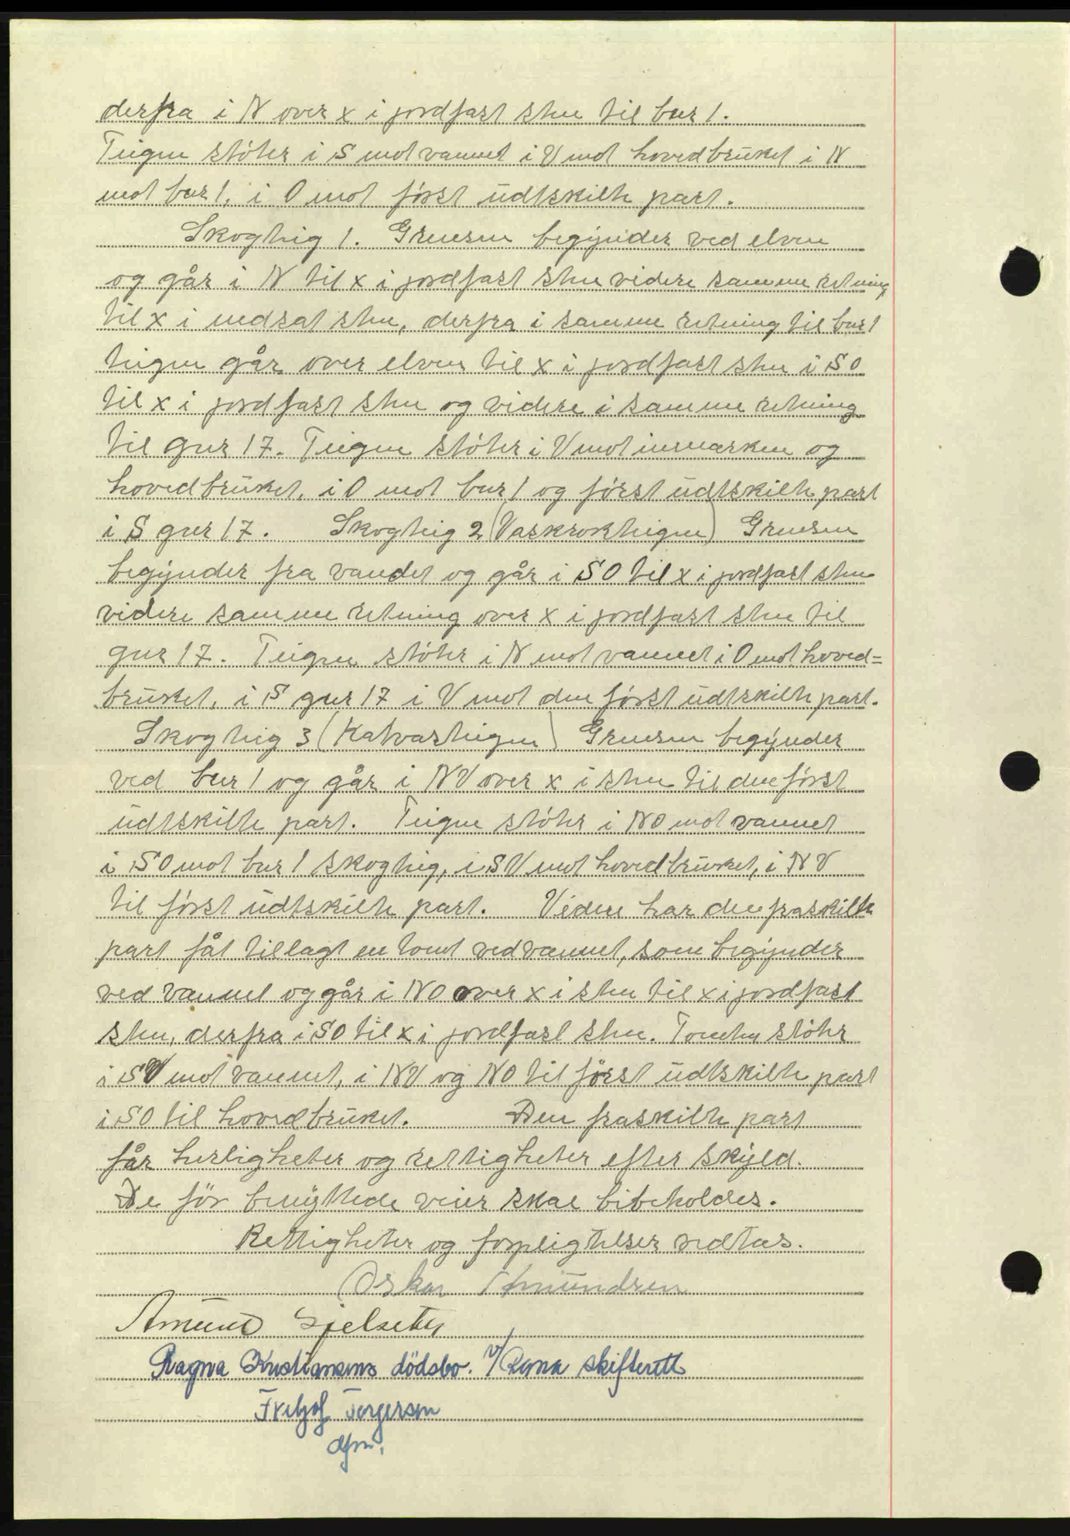 derfra i N over x i jordfast sten til bnr 1.
Teigen stöter i S mot vannet i V mot hovedbruket i N
mot bnr 1, i O mot först üdtskilte part.
Skogteig 1. Grensen begynder ved elven
og går i N til x i jordfast sten videre samme retning
til x i nedsat sten, derfra i samme retning til bnr 1
teigen går over elven til x i jordfast sten i SO
til x i jordfast sten og videre i samme retning
til gnr 17. Teigen stöter i V mot innmarken og
hovedbrüket, i O mot bnr 1 og först üdtskilte part
i S gnr 17. Skogteig 2 (Vaskrokteigen) Grensen
begynder fra vandet og går i SO til x i jordfast sten
videre samme retning over x i jordfast sten til
gnr 17. Teigen stöter i N mot vannet i O mot hoved=
brüket, i S gnr 17 i V mot den först üdtskilte part.
Skogteig 3 (Katvasteigen) Grensen begynder
ved bnr 1 og går i NV over x i sten til den först
üdtskilte part. Teigen stöter i NO mot vannet
i SO mot bnr 1 skogteig, i SV mot hovedbrüket, i NV
til först üdtskilte part. Videre har den fraskilte
part fåt tillagt en tomt ved vannet, som begynder
ved vannet og går i NO over x i sten til x i jordfast
sten, derfra i SO til x i jordfast sten. Tomten stöter
i SV mot vannet, i NV og NO til först üdtskilte part
i SO til hovedbrüket. Den fraskilte part
får herligheter og rettigheter efter skyld.
De för benyttede veier skal bibeholdes.
Rettigheter og forpligtelser vedtas.
Oskar Amundsen
Amund Gjelseth
Ragna Kristiansens dödsbo. v/ Rana skifterett
Fritjof Torgersen
dfm.